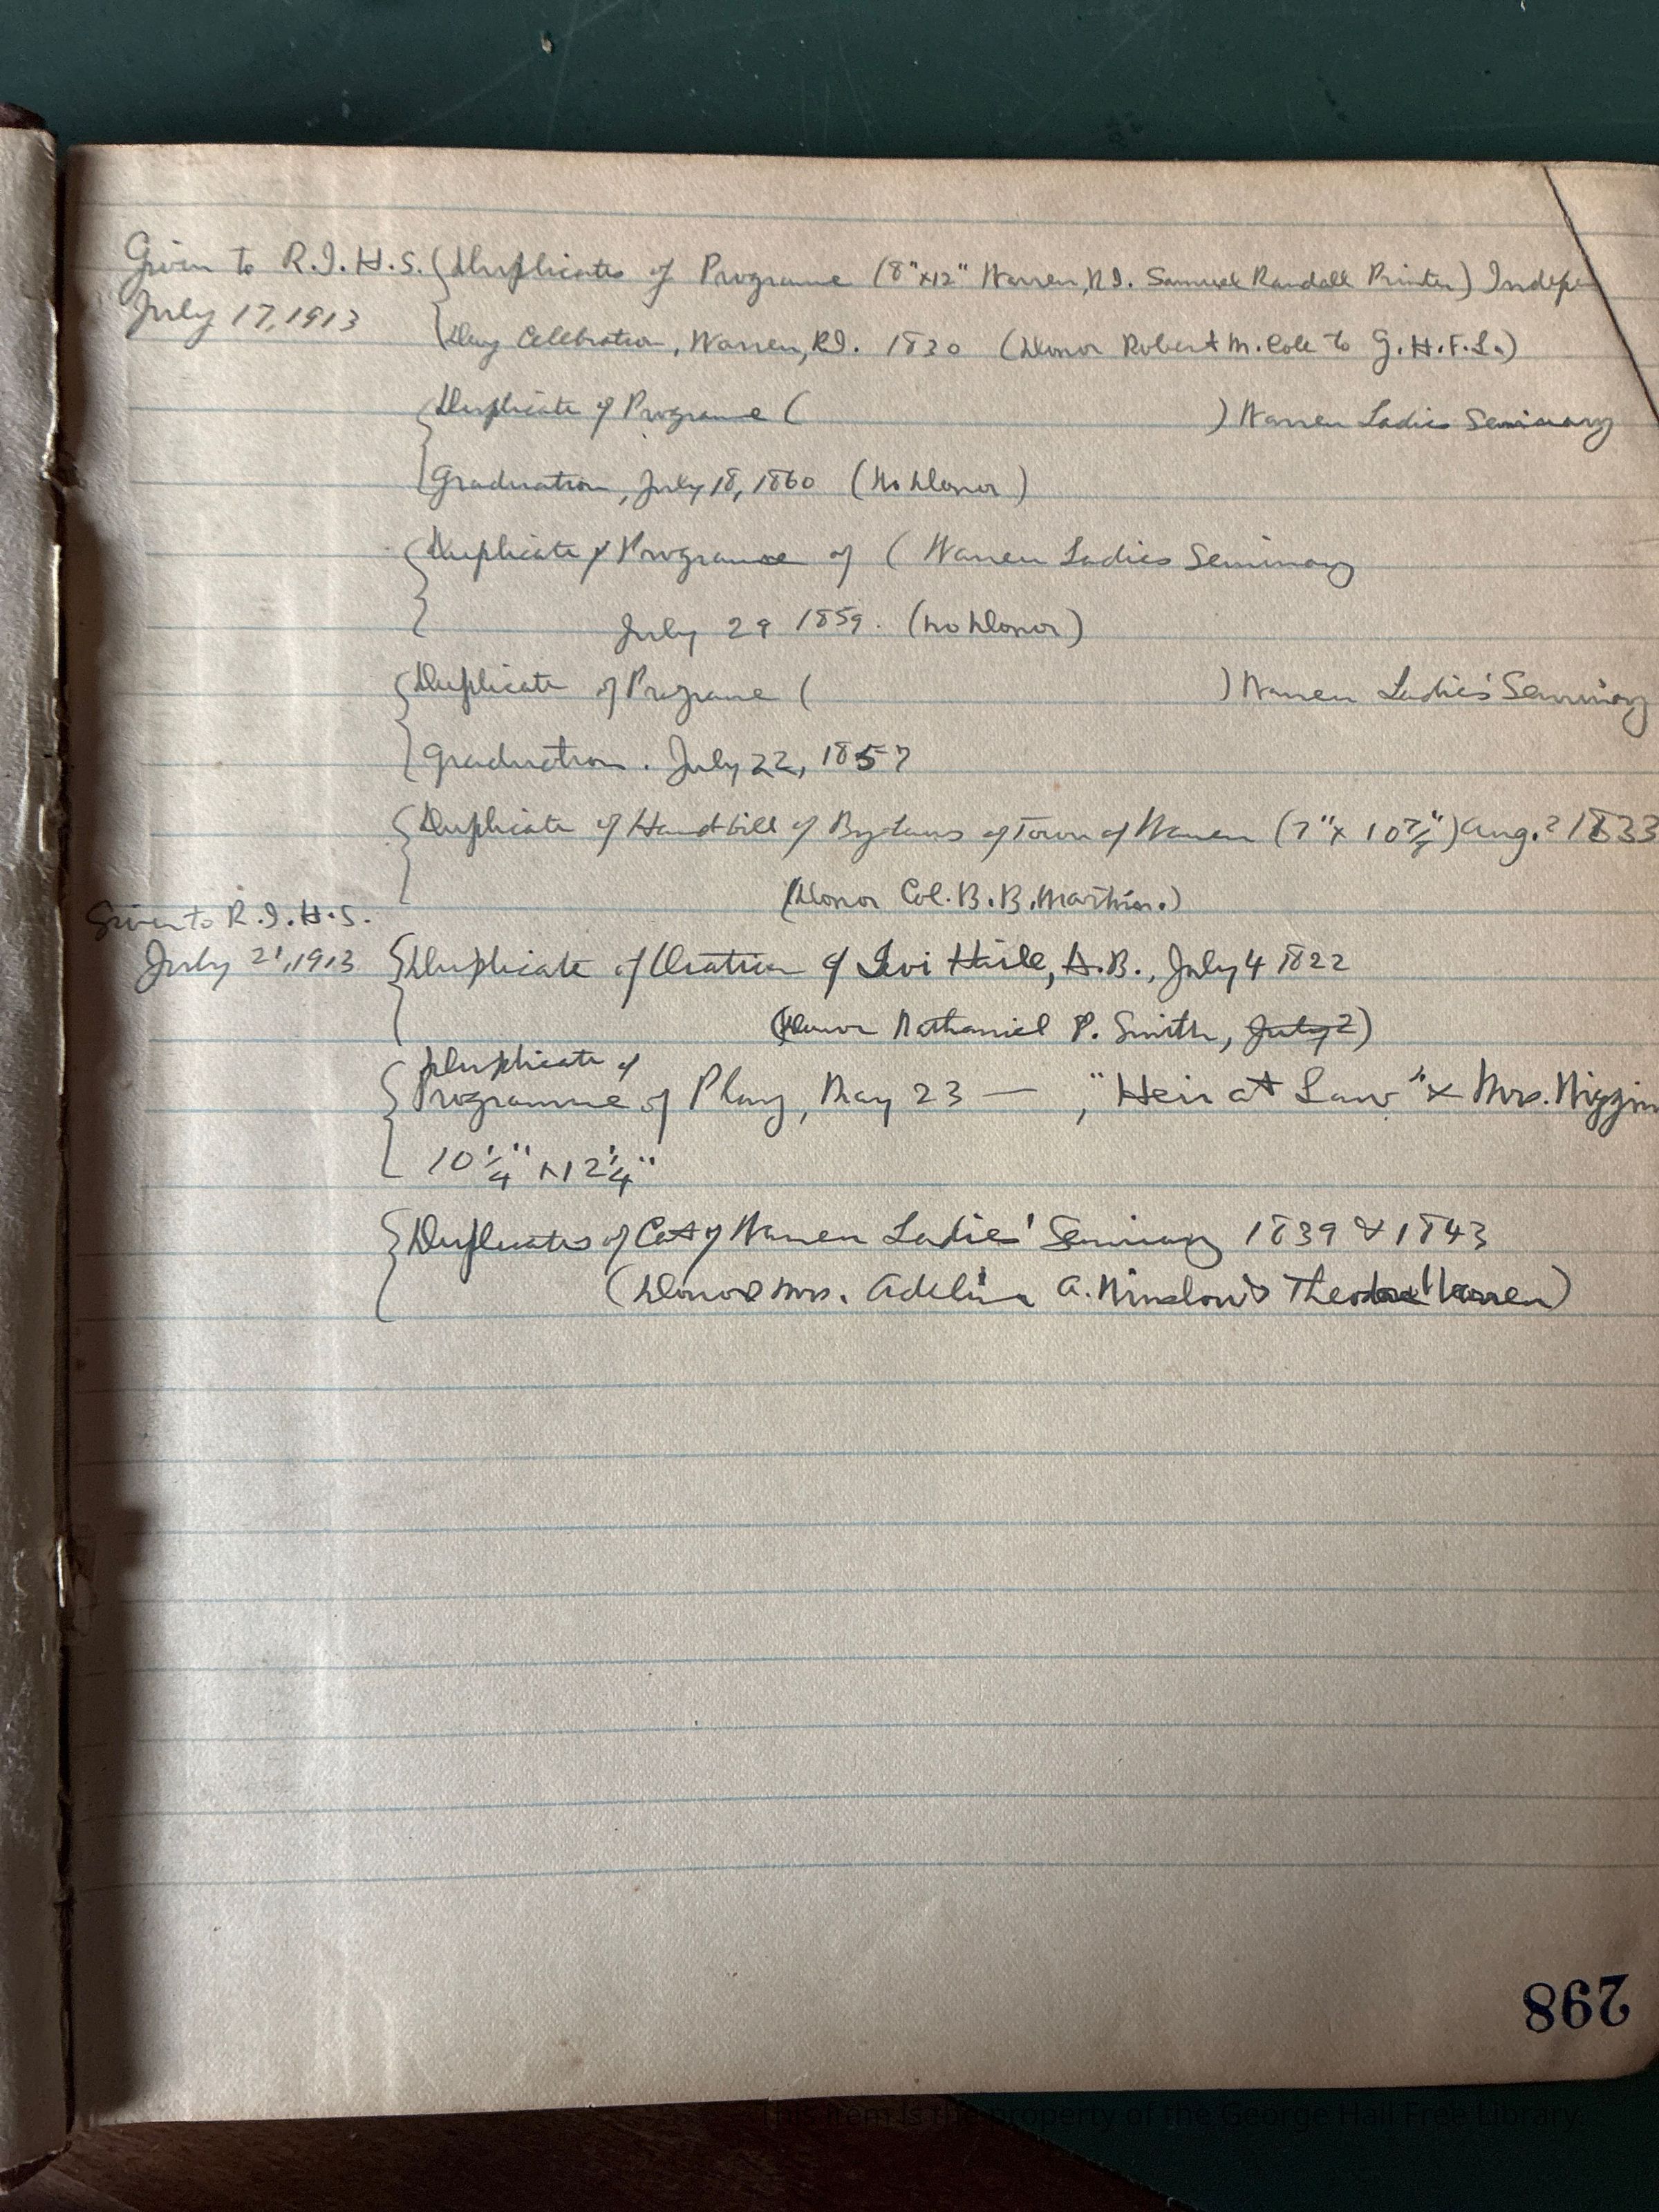 Given to R.I.H.S. Duplicates of Programe (8"x12" Warren, R.I. Samuel Randall Printer) Indepe
July 17, 1913 Day Celebration, Warren, R.I. 1830 (Donor Robert M. Cole to G.H.F.L.)
Duplicate of Programe ( ) Warren Ladies Seminary
graduation, July 18, 1860 (No Donor)
Duplicate of Programe of ( Warren Ladies Seminary
July 29 1859. (No Donor)
Duplicate of Programe ( ) Warren Ladies' Seminary
graduation. July 22, 1857
Duplicate of Handbill of By-Laws of Town of Warren (7" x 10 ") Aug. 1833
(Donor Col. B. B. Martin.)
Given to R.I.H.S.
July 21, 1913 Duplicate of Oration of Levi Haile, A.B., July 4 1822
(Donor Nathaniel P. Smith, July 2)
Duplicate of
Programme of Play, May 23 — , "Heir at Law" &
10 1/4" x 12 1/4"
Duplicates of Cat of Warren Ladies' Seminary 1839 & 1843
(Donors Mrs. Adelina A. Winslow & Theodore Warren)
298
This item is the property of the George Hail Free Library.